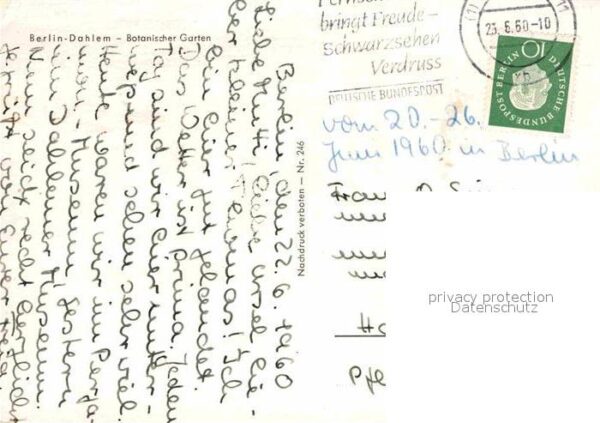 Berlin-Dahlem — Botanischer Garten
Berlin, den 22. 6. 1960
Liebe Mutti, liebe Ursel, lie-
ber kleiner Thomas! Ich
bin hier gut gelandet.
Das Wetter ist prima. Jeden
Tag sind wir hier unter-
wegs und sehen sehr viel.
Heute waren wir im Perga-
mon-Museum, gestern
im Dahlemer Museum.
Nun seid recht herzlich
gegrüßt von Eurer
Nachdruck verboten — Nr. 246
bringt Freude -
Schwarzsehen
Verdruss
DEUTSCHE BUNDESPOST
23. 6. 60 - 10
10
DEUTSCHE BUNDESPOST BERLIN
vom 20. - 26.
Juni 1960 in Berlin
Frau
privacy protection
Datenschutz